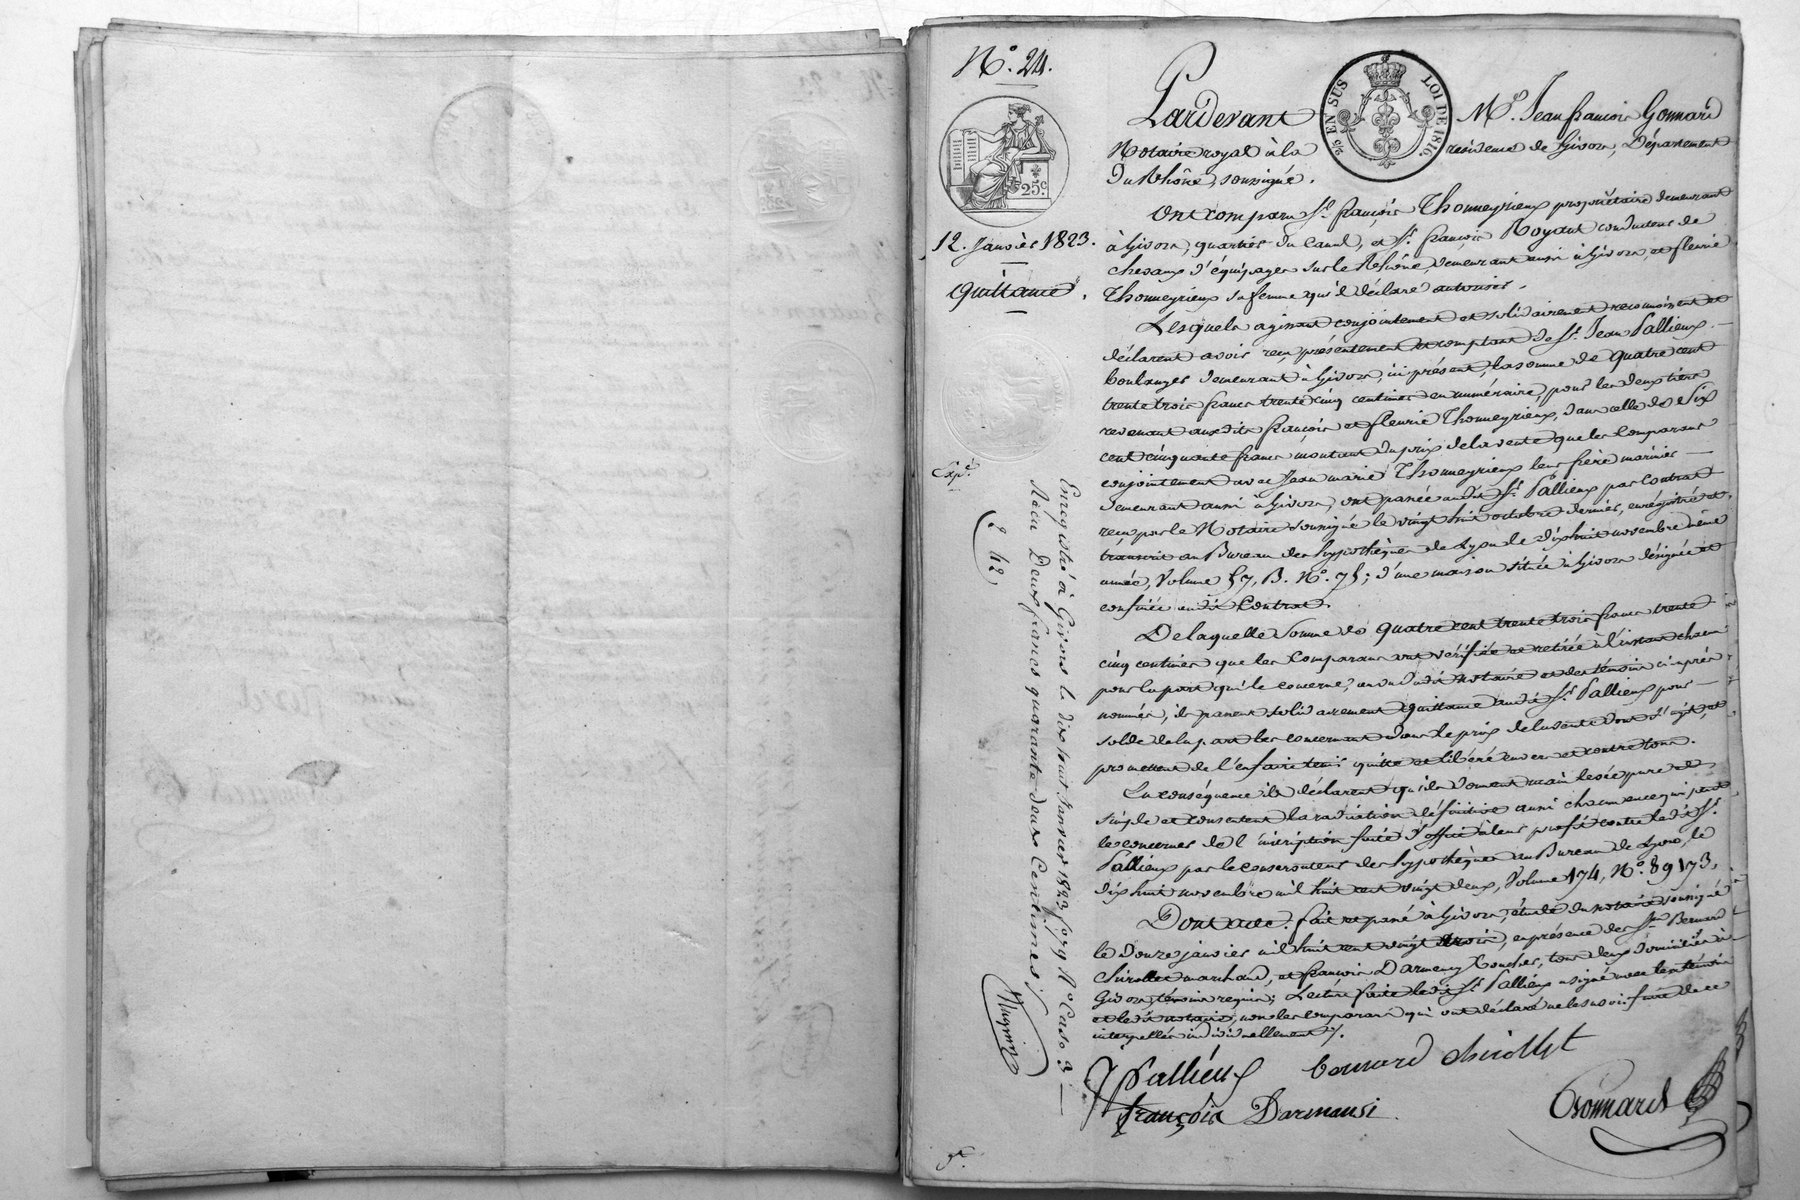 N.º 24.
25 EN SUS
LOI DE 1816.
25 c.
12. Janvier 1823.
Quittance.
Exp.é
2 42
Enregistré à Givors le dix huit Janvier 1823 fo 79 R.o Case 3
Reçu Deux francs quarante deux Centimes
Pardevant M.e Jean françois Gonnard
Notaire royal à la résidence de Givors, Département
du Rhône, soussigné.
Ont comparu S.r françois Thonneyrieux propriétaire demeurant
à Givors, quartier du Canal, et S.r françois Noyant conducteur de
chevaux d'équipages sur le Rhône, demeurant aussi à Givors, et fleurie
Thonneyrieux sa femme qu'il déclare autoriser.
Lesquels agissant conjointement et solidairement reconnoissent et
déclarent avoir reçu présentement et comptant de S.r Jean Pallieux
boulanger demeurant à Givors, ici présent, la somme de quatre cent
trente trois francs trente cinq centimes en numéraire, pour les deux tiers
revenant auxdits françois et fleurie Thonneyrieux, dans celle de Six
cent cinquante francs montant du prix de la vente que les Comparans
conjointement avec Jean marie Thonneyrieux leur frère marinier
demeurant aussi à Givors, ont passée audit S.r Pallieux par Contrat
reçu par le Notaire soussigné le vingt huit octobre dernier, enrégistré et
transcrit au Bureau des hypothèques de Lyon le dix huit novembre même
année, Volume 57, B. N.º 75; d'une maison située à Givors désignée et
confinée audit Contrat.
De laquelle Somme de quatre cent trente trois francs trente
cinq centimes que les Comparans ont vérifiée et retirée à l'instant chacun
pour la part qui le concerne, au vu dudit notaire et des témoins ci après
nommés, ils passent solidairement quittance audit S.r Pallieux pour
solde de la part les concernant dans le prix de la vente dont s'agit, et
promettent de l'en faire tenir quitte et libéré envers et contre tous.
En conséquence ils déclarent qu'ils donnent main levée pure et
simple et consentent la radiation définitive aussi chacun en ce qui peut
le concerner de l'inscription faite d'office à leur profit contre ledit S.r
Pallieux par le conservateur des hypothèques au Bureau de Lyon, le
dix huit novembre mil huit cent vingt deux, Volume 174, N.º 89173.
Dont acte: fait et passé à Givors, étude du notaire soussigné
le Douze janvier mil huit cent vingt trois, en présence des S.rs Bernard
Chirollet marchand, et françois Darmency Cocher, tous deux domiciliés à
Givors, témoins requis; Lecture faite ledit S.r Pallieux a signé avec les témoins
et ledit notaire, non les comparans qui ont déclaré ne le savoir faire de ce
interpellés individuellement.
J Pallieux bernard chirollet
françois Darmansi Gonnard